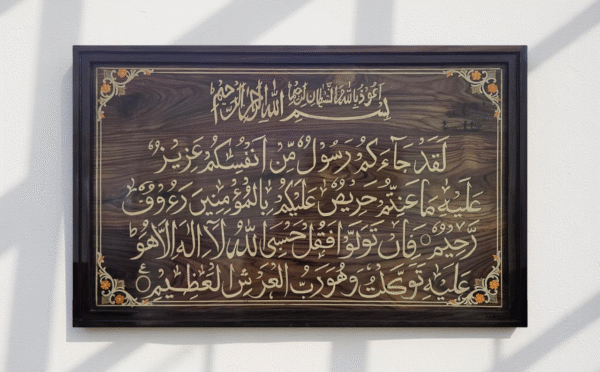 اَعُوْذُ بِاللّٰهِ مِنَ الشَّيْطٰنِ الرَّجِيْمِ
بِسْمِ اللّٰهِ الرَّحْمٰنِ الرَّحِيْمِ
لَقَدْ جَآءَكُمْ رَسُوْلٌ مِّنْ اَنْفُسِكُمْ عَزِيْزٌ
عَلَيْهِ مَا عَنِتُّمْ حَرِيْصٌ عَلَيْكُمْ بِالْمُؤْمِنِيْنَ رَءُوْفٌ
رَّحِيْمٌ فَاِنْ تَوَلَّوْا فَقُلْ حَسْبِيَ اللّٰهُ لَآ اِلٰهَ اِلَّا هُوَ
عَلَيْهِ تَوَكَّلْتُ وَهُوَ رَبُّ الْعَرْشِ الْعَظِيْمِ